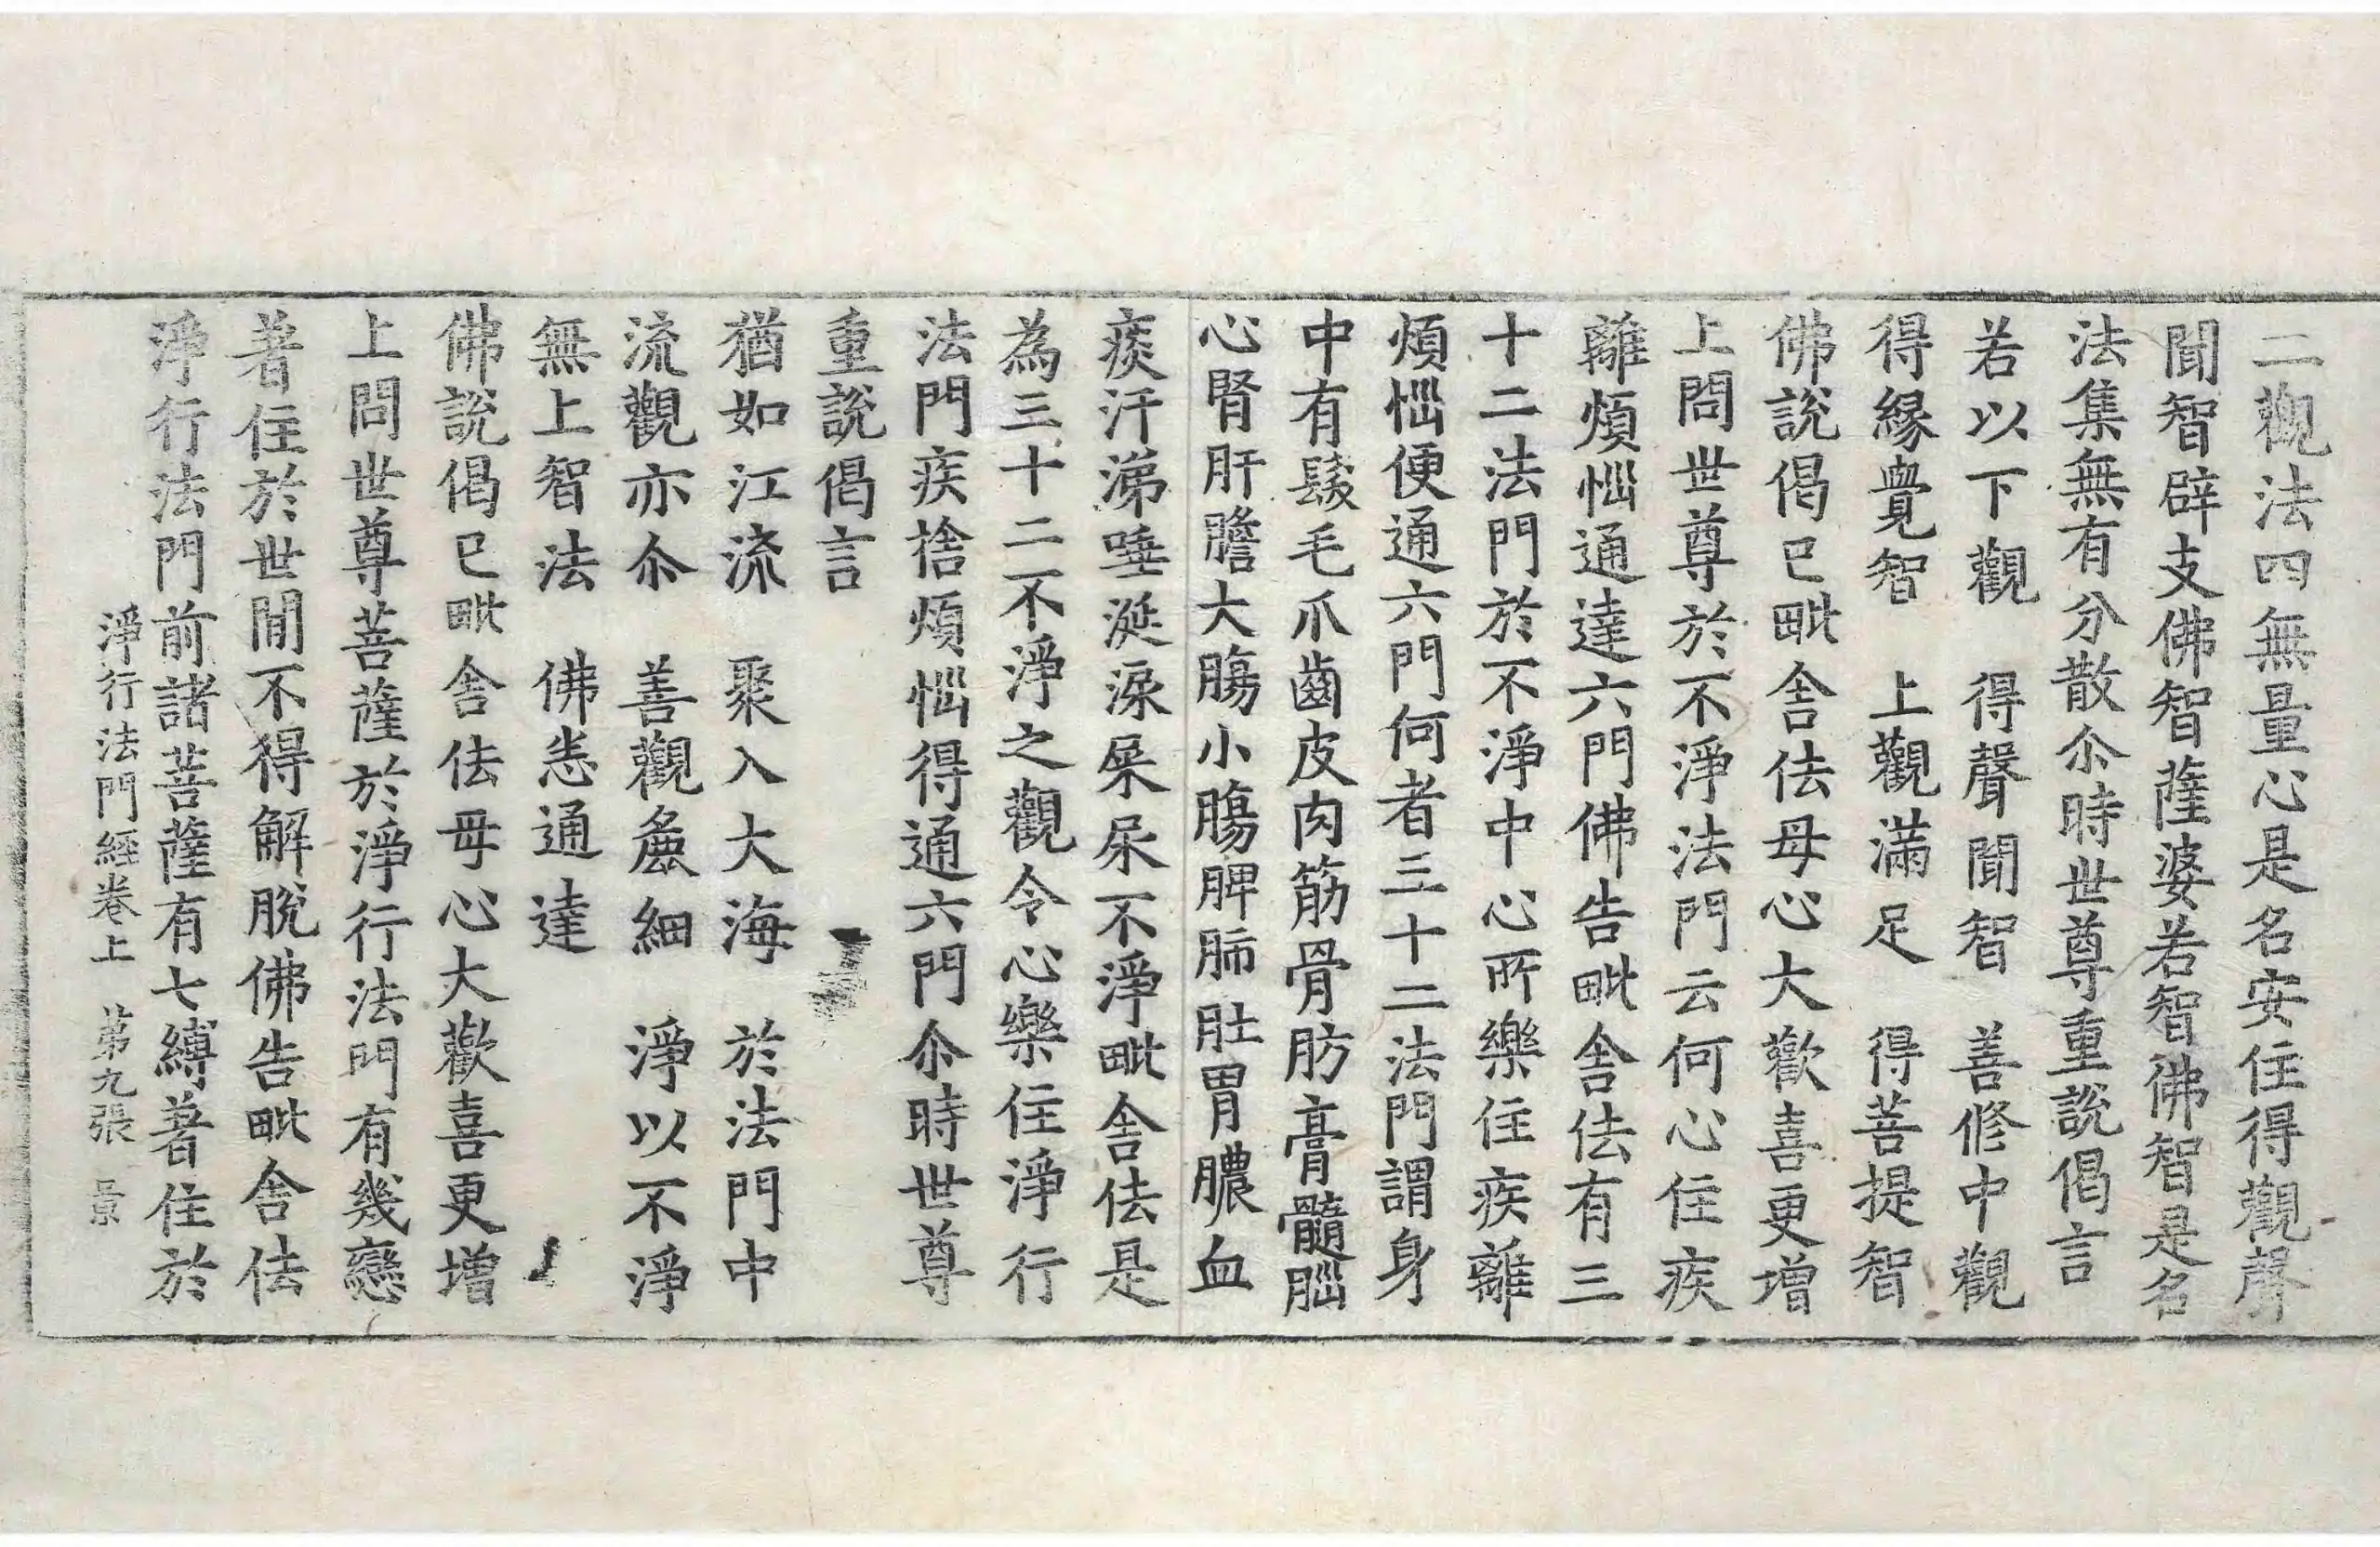 二觀法四無量心是名安住得觀聲
聞智辟支佛智薩婆若智佛智是名
法集無有分散尒時世尊重說偈言
若以下觀　得聲聞智　善修中觀
得緣覺智　上觀滿足　得菩提智
佛說偈已毗舍佉母心大歡喜更增
上問世尊於不淨法門云何心住疾
離煩惱通達六門佛告毗舍佉有三
十二法門於不淨中心所樂住疾離
煩惱便通六門何者三十二法門謂身
中有髮毛爪齒皮肉筋骨肪膏髓腦
心腎肝膽大腸小腸脾肺肚胃膿血
痰汗涕唾涎淚屎尿不淨毗舍佉是
為三十二不淨之觀令心樂住淨行
法門疾捨煩惱得通六門尒時世尊
重說偈言
猶如江流　聚入大海　於法門中
流觀亦尒　善觀麁細　淨以不淨
無上智法　佛悉通達
佛說偈已毗舍佉母心大歡喜更增
上問世尊菩薩於淨行法門有幾戀
著住於世間不得解脫佛告毗舍佉
淨行法門前諸菩薩有七縛著住於
淨行法門經卷上　第九張　景